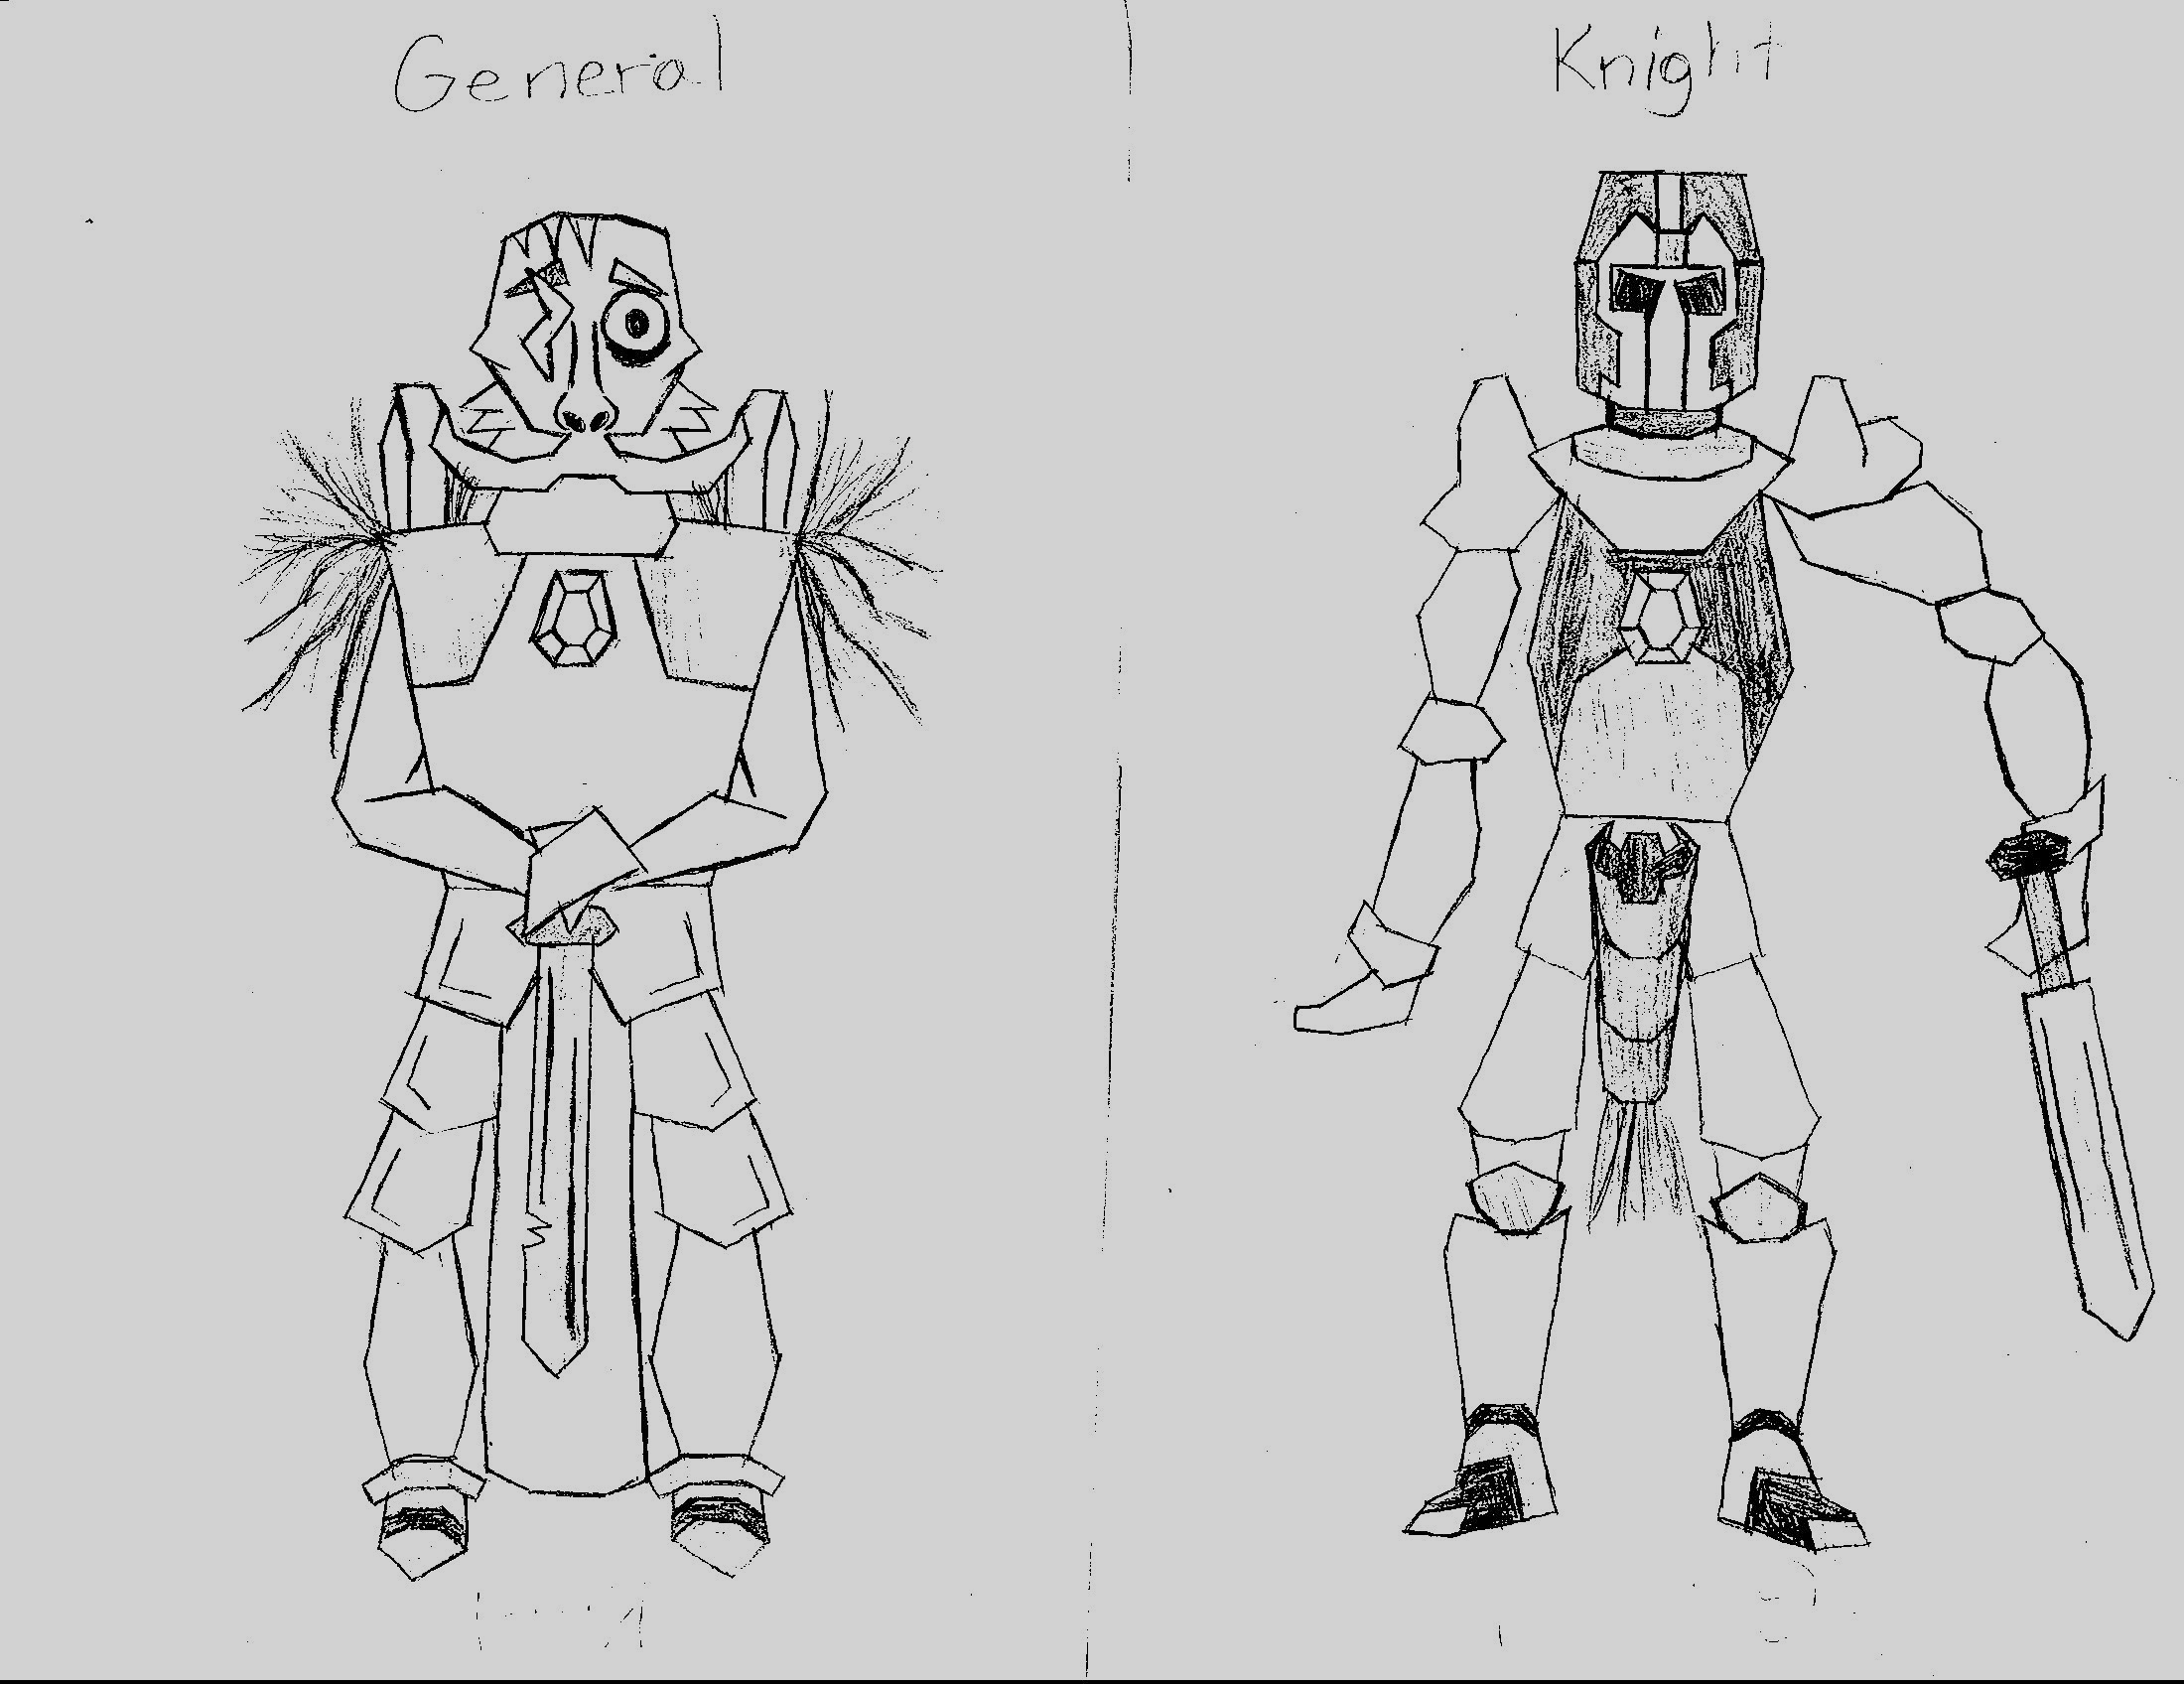 General
Knight